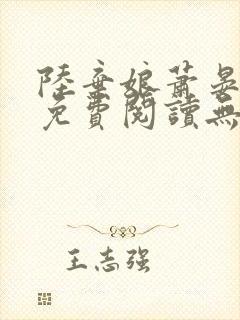 陸棄娘蕭晏
免費閱讀無
王志强